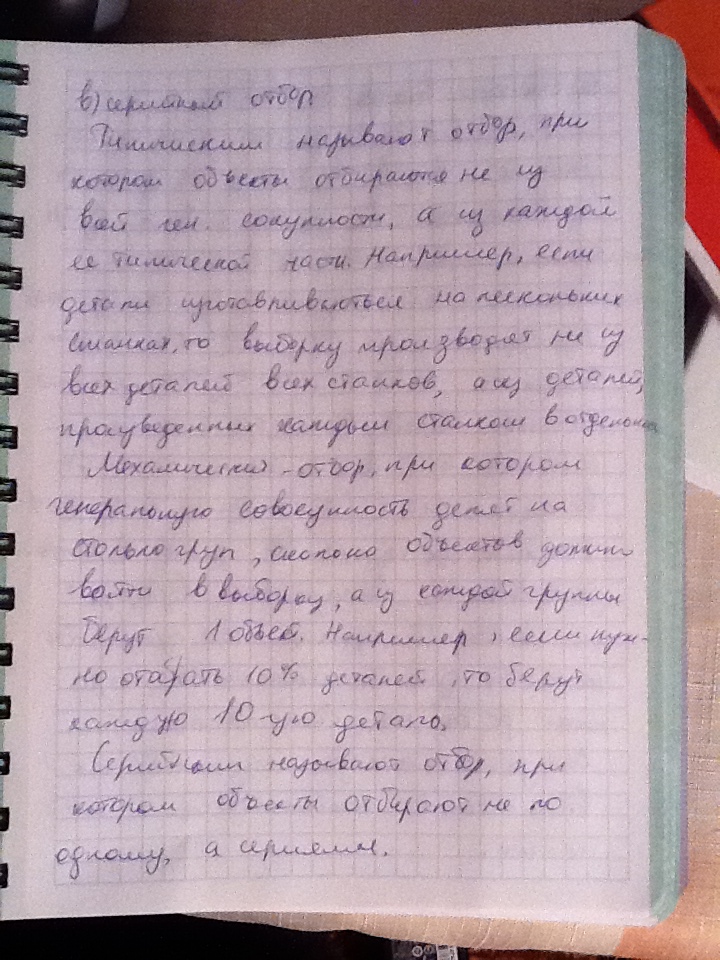 в) серийный отбор
Типическим называют отбор, при
котором объекты отбираются не из
всей ген. совукупност, а из каждой
ее типической части. Например, если
детали изготавливаются на нескольких
станках, то выборку производят не из
всех деталей всех станков, а из деталей,
произведенных каждым станком в отдельности
Механический - отбор, при котором
генеральную совокупность делят на
столько груп, сколько объектов должны
войти в выборку, а из каждой группы
берут 1 объект. Например, если нуж-
но отобрать 10% деталей, то берут
каждую 10-ую деталь.
Серийным называют отбор, при
котором объекты отбирают не по
одному, а сериями.